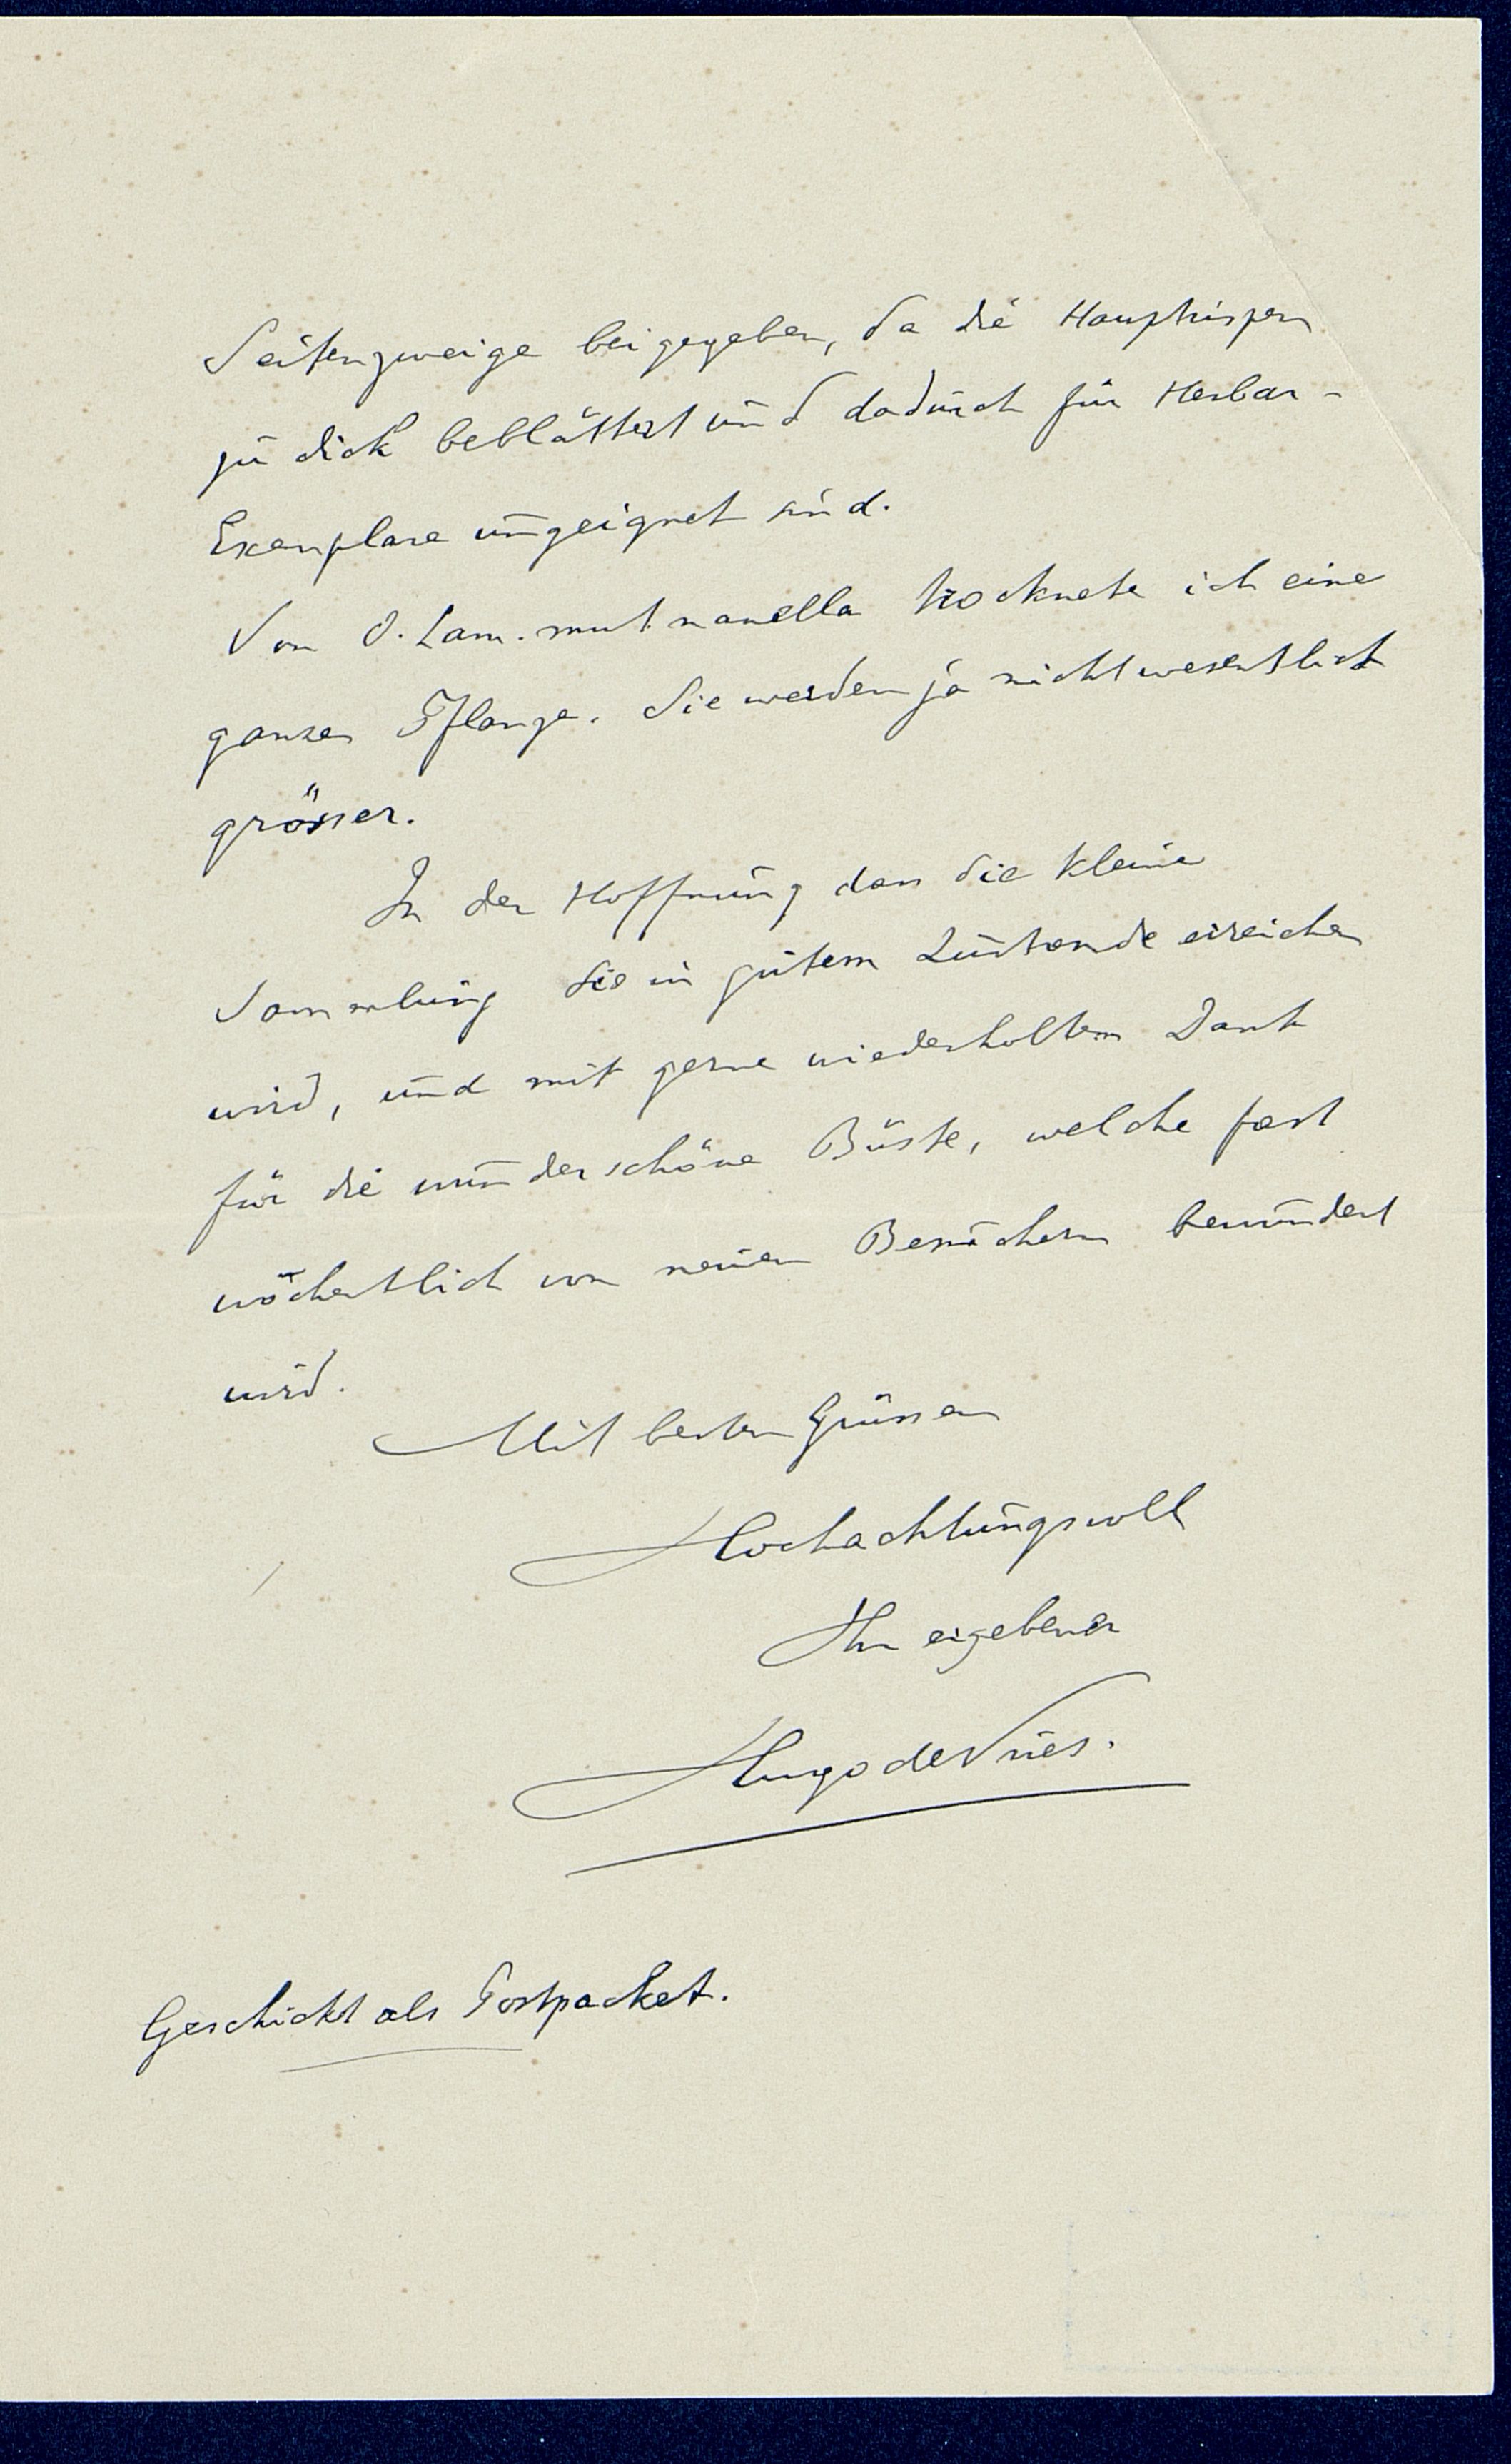 Seitenzweige beigegeben, da die Hauptrispen
zu dick beblättert und dadurch für Herbar-
Exemplare ungeignet sind.
Von O. Lam. mut. nanella trocknete ich eine
ganze Pflanze. Sie werden ja nicht wesentlich
grösser.
In der Hoffnung dass die kleine
Sammlung Sie in gutem Zustande erreichen
wird, und mit gerne wiederholtem Dank
für die wunderschöne Büste, welche fast
wöchentlich von neuen Besuchern bewundert
wird.
Mit besten Grüssen
Hochachtungsvoll
Ihr ergebener
Hugo de Vries.
Geschickt als Postpacket.